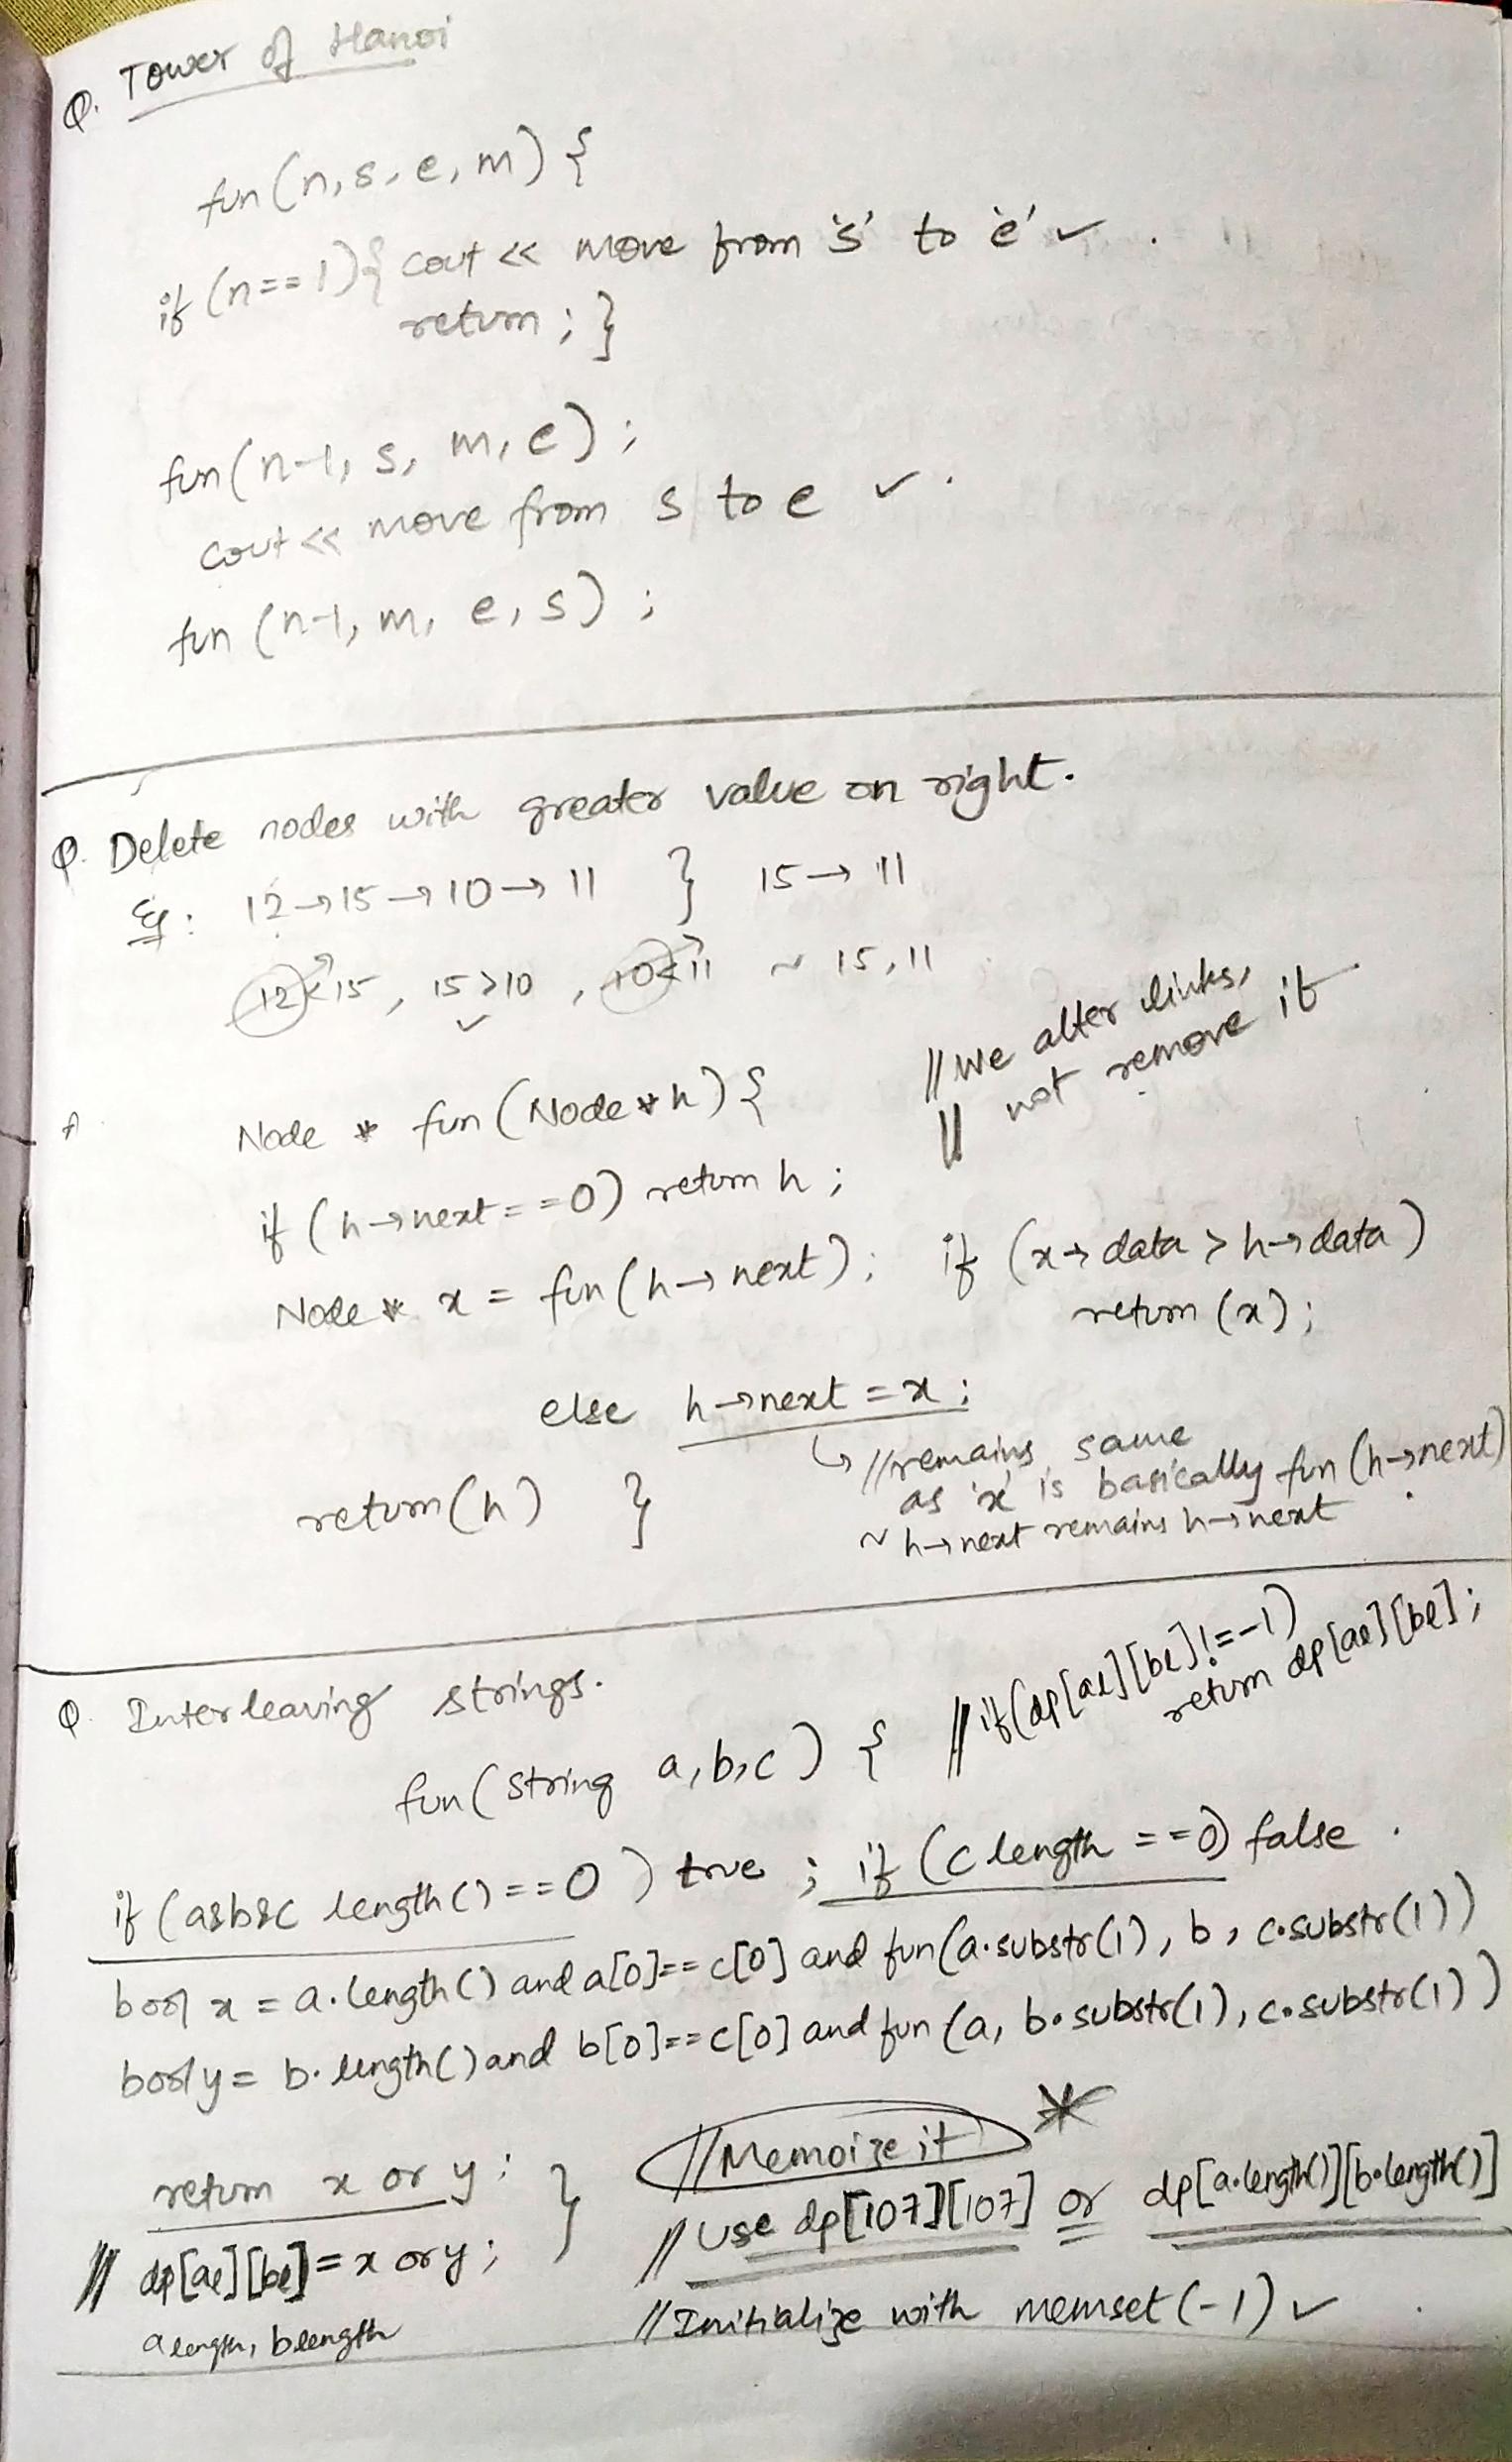 Q. Tower of Hanoi
fun(n,s,e,m) {
if (n==1){ cout << move from 's' to 'e' ✓ .
return ; }
fun(n-1, s, m, e) ;
cout << move from s to e ✓ .
fun (n-1, m, e, s) ;
Q. Delete nodes with greater value on right.
Eg: 12→15→10→11 } 15→11
12<15, 15>10, 10<11 ~ 15,11
✓
// We alter links,
// not remove it
A Node * fun (Node * h) {
if (h→next==0) return h ;
Node * x = fun(h→next); if (x→data > h→data)
return (x);
else h→next = x ;
↳ //remains same
as 'x' is basically fun(h→next)
~ h→next remains h→next .
return(h) }
Q. Interleaving strings.
// if(dp[ae][be]!=-1)
return dp[ae][be];
fun(string a,b,c) {
if (a&b&c length()==0) true ; if (c length ==0) false .
bool x = a.length() and a[0]==c[0] and fun(a.substr(1), b, c.substr(1))
bool y = b.length() and b[0]==c[0] and fun(a, b.substr(1), c.substr(1))
return x or y ; }
// dp[ae][be] = x or y ;
a length, b length
//Memoize it *
// Use dp[107][107] or dp[a.length()][b.length()]
// Initialize with memset(-1) ✓